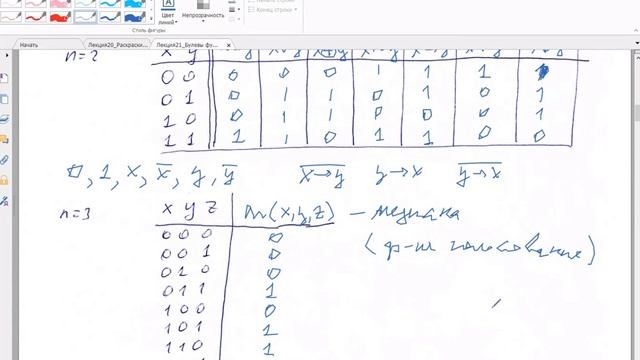 Цвет линии
Непрозрачность
Начало строки
Конец строки
Стиль фигуры
Начать Лекция20_Раскраски... Лекция21_Булевы фу...
n=2 x y
0 0 0 0 0 1 1 1 1
0 1 0 1 1 0 1 0 1
1 0 0 1 1 0 0 0 1
1 1 1 1 0 1 1 0 0
0, 1, x, x̅, y, y̅ x̅→̅y̅ y→x y̅→̅x̅
n=3 x y z m(x,y,z) – медиана
0 0 0 0 (ф-ия голосования)
0 0 1 0
0 1 0 0
0 1 1 1
1 0 0 0
1 0 1 1
1 1 0 1